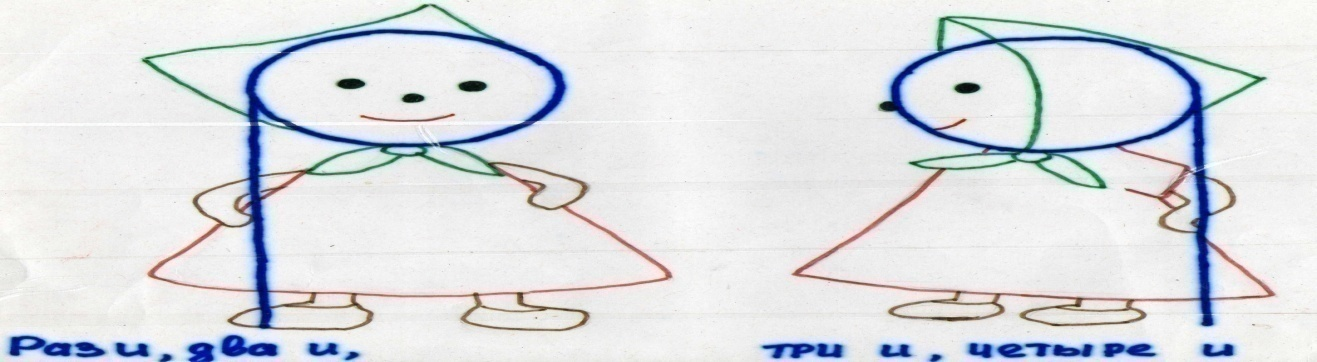 Раз и, два и,
три и, четыре и